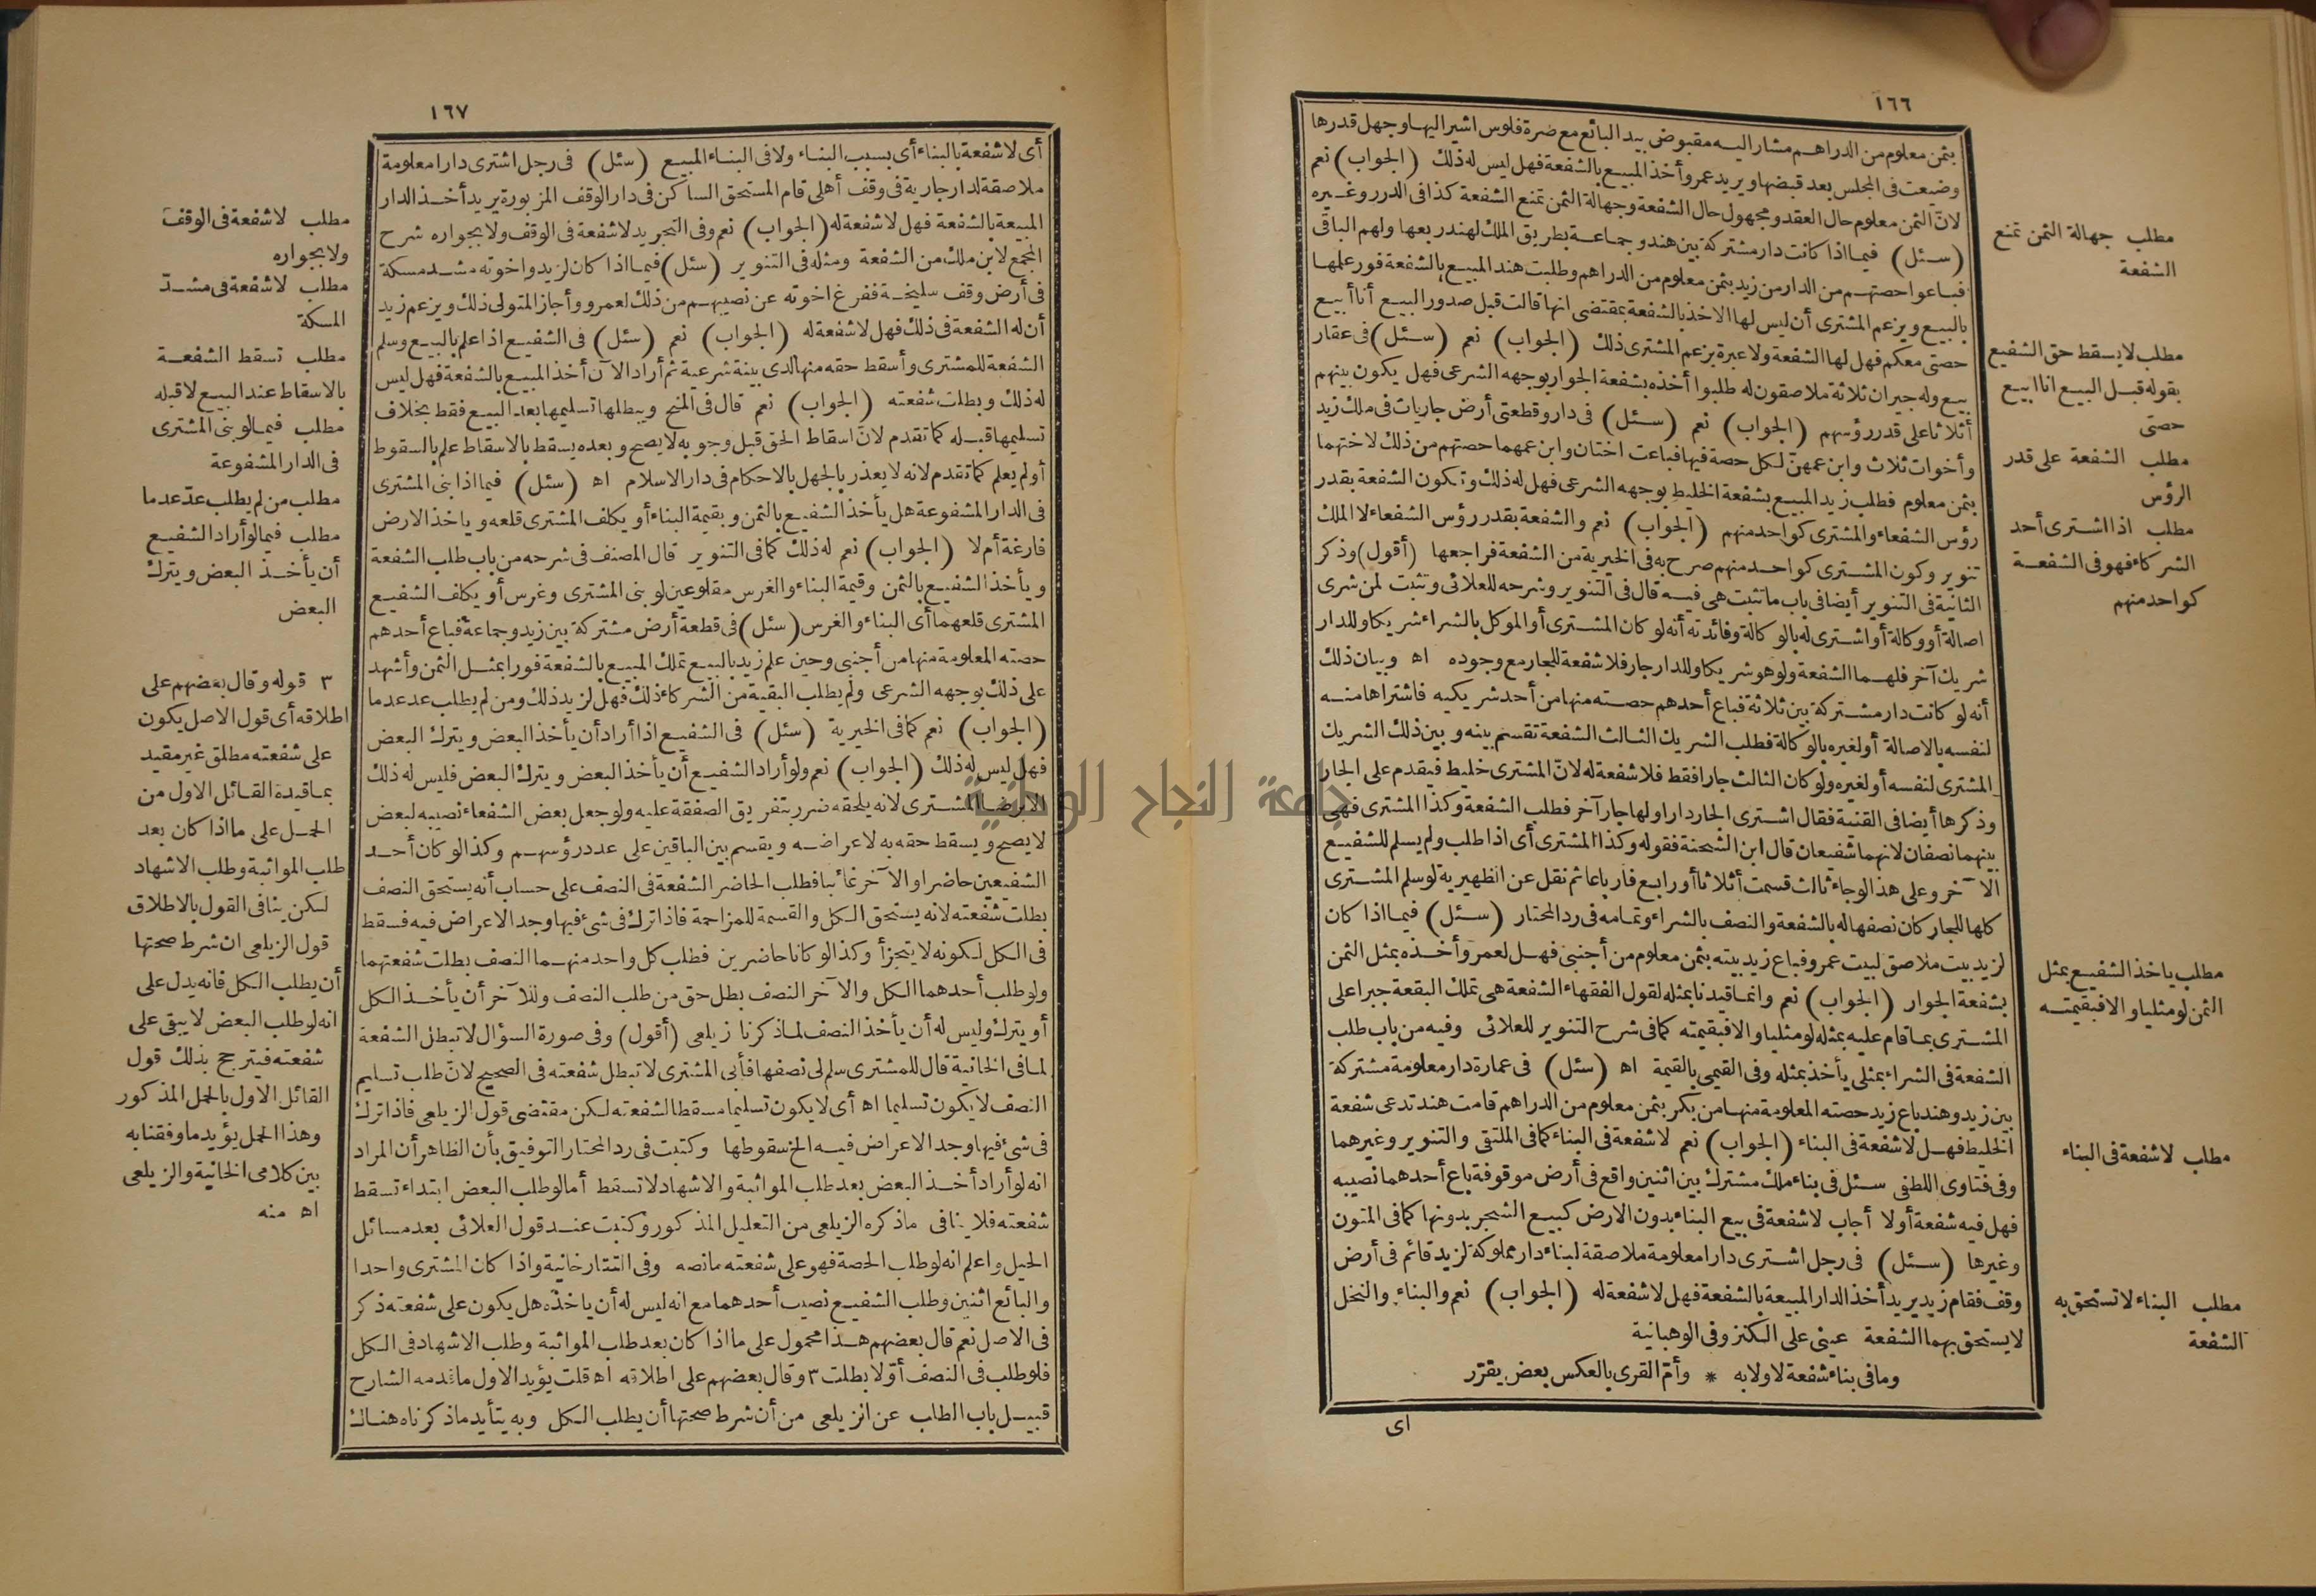 ١٦٦
بثمن معلوم من الدراهم مشار اليه مقبوض بيد البائع مع صرة فلوس اشير اليها وجهل قدرها
وضيعت فى المجلس بعد قبضها ويريد عمرو أخذ المبيع بالشفعة فهل ليس له ذلك (الجواب) نعم
لانّ الثمن معلوم حال العقد ومجهول حال الشفعة وجهالة الثمن تمنع الشفعة كذا فى الدرر وغيره
(سئل) فيما اذا كانت دار مشتركة بين هند وجماعة بطريق الملك لهند ربعها ولهم الباقى
فباعوا حصتهم من الدار من زيد بثمن معلوم من الدراهم وطلبت هند المبيع بالشفعة فور علمها
بالبيع ويزعم المشترى أن ليس لها الاخذ بالشفعة بمقتضى انها قالت قبل صدور البيع أنا أبيع
حصتى معكم فهل لها الشفعة ولا عبرة بزعم المشترى ذلك (الجواب) نعم (سئل) فى عقار
بيع وله جيران ثلاثة ملاصقون له طلبوا أخذه بشفعة الجوار بوجهه الشرعى فهل يكون بينهم
أثلاثا على قدر رؤسهم (الجواب) نعم (سئل) فى دار وقطعتى أرض جاريات فى ملك زيد
وأخوات ثلاث وابن عمهنّ لكل حصة فيها فباعت اختان وابن عمهما حصتهم من ذلك لاختهما
بثمن معلوم فطلب زيد المبيع بشفعة الخليط بوجهه الشرعى فهل له ذلك وتكون الشفعة بقدر
رؤس الشفعاء والمشترى كواحد منهم (الجواب) نعم والشفعة بقدر رؤس الشفعاء لا الملك
تنوير وكون المشترى كواحد منهم صرح به فى الخيرية من الشفعة فراجعها (أقول) وذكر
الثانية فى التنوير أيضا فى باب ما تثبت هى فيه قال فى التنوير وشرحه للعلائى وتثبت لمن شرى
اصالة أو وكالة أو اشترى له بالوكالة وفائدته أنه لو كان المشترى أو الموكل بالشراء شريكا وللدار
شريك آخر فلهما الشفعة ولو هو شريكا وللدار جار فلا شفعة للجار مع وجوده اه وبيان ذلك
أنه لو كانت دار مشتركة بين ثلاثة فباع أحدهم حصته منها من أحد شريكيه فاشتراها منه
لنفسه بالاصالة أو لغيره بالوكالة فطلب الشريك الثالث الشفعة تقسم بينه وبين ذلك الشريك
المشترى لنفسه أو لغيره ولو كان الثالث جارا فقط فلا شفعة له لانّ المشترى خليط فيقدم على الجار
وذكرها أيضا فى القنية فقال اشترى الجار دارا ولها جار آخر فطلب الشفعة وكذا المشترى فهى
بينهما نصفان لانهما شفيعان قال ابن الشحنة فقوله وكذا المشترى أى اذا طلب ولم يسلم للشفيع
الآخر وعلى هذا لو جاء ثالث قسمت أثلاثا أو رابع فارباعا ثم نقل عن الظهيرية لو سلم المشترى
كلها للجار كان نصفها له بالشفعة والنصف بالشراء وتمامه فى رد المحتار (سئل) فيما اذا كان
لزيد بيت ملاصق لبيت عمرو فباع زيد بيته بثمن معلوم من أجنبى فهل لعمرو أخذه بمثل الثمن
بشفعة الجوار (الجواب) نعم وانما قيدنا بمثله لقول الفقهاء الشفعة هى تملك البقعة جبرا على
المشترى بما قام عليه بمثله لو مثليا والا فبقيمته كما فى شرح التنوير للعلائى وفيه من باب طلب
الشفعة فى الشراء بمثلى يأخذ بمثله وفى القيمى بالقيمة اه (سئل) فى عمارة دار معلومة مشتركة
بين زيد وهند باع زيد حصته المعلومة منها من بكر بثمن معلوم من الدراهم قامت هند تدعى شفعة
الخليط فهل لا شفعة فى البناء (الجواب) نعم لا شفعة فى البناء كما فى الملتقى والتنوير وغيرهما
وفى فتاوى اللطفى سئل فى بناء ملك مشترك بين اثنين واقع فى أرض موقوفة باع أحدهما نصيبه
فهل فيه شفعة أولا أجاب لا شفعة فى بيع البناء بدون الارض كبيع الشجر بدونها كما فى المتون
وغيرها (سئل) فى رجل اشترى دارا معلومة ملاصقة لبناء دار مملوكة لزيد قائم فى أرض
وقف فقام زيد يريد أخذ الدار المبيعة بالشفعة فهل لا شفعة له (الجواب) نعم والبناء والنخل
لا يستحق بهما الشفعة عينى على الكنز وفى الوهبانية
وما فى بناء شفعة لا ولا به * وأمّ القرى بالعكس بعض يقرّر
اى
مطلب جهالة الثمن تمنع
الشفعة
مطلب لا يسقط حق الشفيع
بقوله قبل البيع انا ابيع
حصتى
مطلب الشفعة على قدر
الرؤس
مطلب اذا اشترى أحد
الشركاء فهو فى الشفعة
كواحد منهم
مطلب ياخذ الشفيع بمثل
الثمن لو مثليا والا فبقيمته
مطلب لا شفعة فى البناء
مطلب البناء لا تستحق به
الشفعة
١٦٧
أى لا شفعة بالبناء أى بسبب البناء ولا فى البناء المبيع (سئل) فى رجل اشترى دارا معلومة
ملاصقة لدار جارية فى وقف أهلى قام المستحق الساكن فى دار الوقف المزبورة يريد أخذ الدار
المبيعة بالشفعة فهل لا شفعة له (الجواب) نعم وفى التجريد لا شفعة فى الوقف ولا بجواره شرح
المجمع لابن ملك من الشفعة ومثله فى التنوير (سئل) فيما اذا كان لزيد واخوته مشد مسكة
فى أرض وقف سليخة ففرغ اخوته عن نصيبهم من ذلك لعمرو وأجاز المتولى ذلك ويزعم زيد
أن له الشفعة فى ذلك فهل لا شفعة له (الجواب) نعم (سئل) فى الشفيع اذا علم بالبيع وسلم
الشفعة للمشترى وأسقط حقه منها لدى بينة شرعية ثم أراد الآن أخذ المبيع بالشفعة فهل ليس
له ذلك وبطلت شفعته (الجواب) نعم قال فى المنح ويبطلها تسليمها بعد البيع فقط بخلاف
تسليمها قبله كما تقدم لانّ اسقاط الحق قبل وجوبه لا يصح وبعده يسقط بالاسقاط علم بالسقوط
أو لم يعلم كما تقدم لانه لا يعذر بالجهل بالاحكام فى دار الاسلام اه (سئل) فيما اذا بنى المشترى
فى الدار المشفوعة هل يأخذ الشفيع بالثمن وبقيمة البناء أو يكلف المشترى قلعه وياخذ الارض
فارغة أم لا (الجواب) نعم له ذلك كما فى التنوير قال المصنف فى شرحه من باب طلب الشفعة
ويأخذ الشفيع بالثمن وقيمة البناء والغرس مقلوعين لو بنى المشترى وغرس أو يكلف الشفيع
المشترى قلعهما أى البناء والغرس (سئل) فى قطعة أرض مشتركة بين زيد وجماعة فباع أحدهم
حصته المعلومة منها من أجنبى وحين علم زيد بالبيع تملك المبيع بالشفعة فورا بمثل الثمن وأشهد
على ذلك بوجهه الشرعى ولم يطلب البقية من الشركاء ذلك فهل لزيد ذلك ومن لم يطلب عد عدما
(الجواب) نعم كما فى الخيرية (سئل) فى الشفيع اذا أراد أن يأخذ البعض ويترك البعض
فهل ليس له ذلك (الجواب) نعم ولو أراد الشفيع أن يأخذ البعض ويترك البعض فليس له ذلك
الا برضا المشترى لانه يلحقه ضرر بتفريق الصفقة عليه ولو جعل بعض الشفعاء نصيبه لبعض
لا يصح ويسقط حقه به لاعراضه ويقسم بين الباقين على عدد رؤسهم وكذا لو كان أحد
الشفيعين حاضرا والآخر غائبا فطلب الحاضر الشفعة فى النصف على حساب أنه يستحق النصف
بطلت شفعته لانه يستحق الكل والقسمة للمزاحمة فاذا ترك فى شئ فيها وجد الاعراض فيه فسقط
فى الكل لكونه لا يتجزأ وكذا لو كانا حاضرين فطلب كل واحد منهما النصف بطلت شفعتهما
ولو طلب أحدهما الكل والآخر النصف بطل حق من طلب النصف وللآخر أن يأخذ الكل
أو يترك وليس له أن يأخذ النصف لما ذكرنا زيلعى (أقول) وفى صورة السؤال لا تبطل الشفعة
لما فى الخانية قال للمشترى سلم لى نصفها فأبى المشترى لا تبطل شفعته فى الصحيح لانّ طلب تسليم
النصف لا يكون تسليما اه أى لا يكون تسليما مسقطا لشفعته لكن مقتضى قول الزيلعى فاذا ترك
فى شئ فيها وجد الاعراض فيه الخ سقوطها وكتبت فى رد المحتار التوفيق بأن الظاهر أن المراد
انه لو أراد أخذ البعض بعد طلب المواثبة والاشهاد لا تسقط أما لو طلب البعض ابتداء تسقط
شفعته فلا ينافى ما ذكره الزيلعى من التعليل المذكور وكتبت عند قول العلائى بعد مسائل
الحيل واعلم انه لو طلب الحصة فهو على شفعته ما نصه وفى التتارخانية واذا كان المشترى واحدا
والبائع اثنين وطلب الشفيع نصيب أحدهما مع انه ليس له أن ياخذه هل يكون على شفعته ذكر
فى الاصل نعم قال بعضهم هذا محمول على ما اذا كان بعد طلب المواثبة وطلب الاشهاد فى الكل
فلو طلب فى النصف أوّلا بطلت ٣ وقال بعضهم على اطلاقه اه قلت يؤيد الاول ما قدمه الشارح
قبيل باب الطلب عن الزيلعى من أن شرط صحتها أن يطلب الكل وبه يتأيد ما ذكرناه هناك
مطلب لا شفعة فى الوقف
ولا بجواره
مطلب لا شفعة فى مشدّ
المسكة
مطلب تسقط الشفعة
بالاسقاط عند البيع لا قبله
مطلب فيما لو بنى المشترى
فى الدار المشفوعة
مطلب من لم يطلب عدّ عدما
مطلب فيما لو أراد الشفيع
أن يأخذ البعض ويترك
البعض
٣ قوله وقال بعضهم على
اطلاقه أى قول الاصل يكون
على شفعته مطلق غير مقيد
بما قيده القائل الاول من
الحمل على ما اذا كان بعد
طلب المواثبة وطلب الاشهاد
لكن ينافى القول بالاطلاق
قول الزيلعى ان شرط صحتها
أن يطلب الكل فانه يدل على
انه لو طلب البعض لا يبقى على
شفعته فيترجح بذلك قول
القائل الاول بالحمل المذكور
وهذا الحمل يؤيد ما وفقنا به
بين كلامى الخانية والزيلعى
اه منه
جامعة النجاح الوطنية